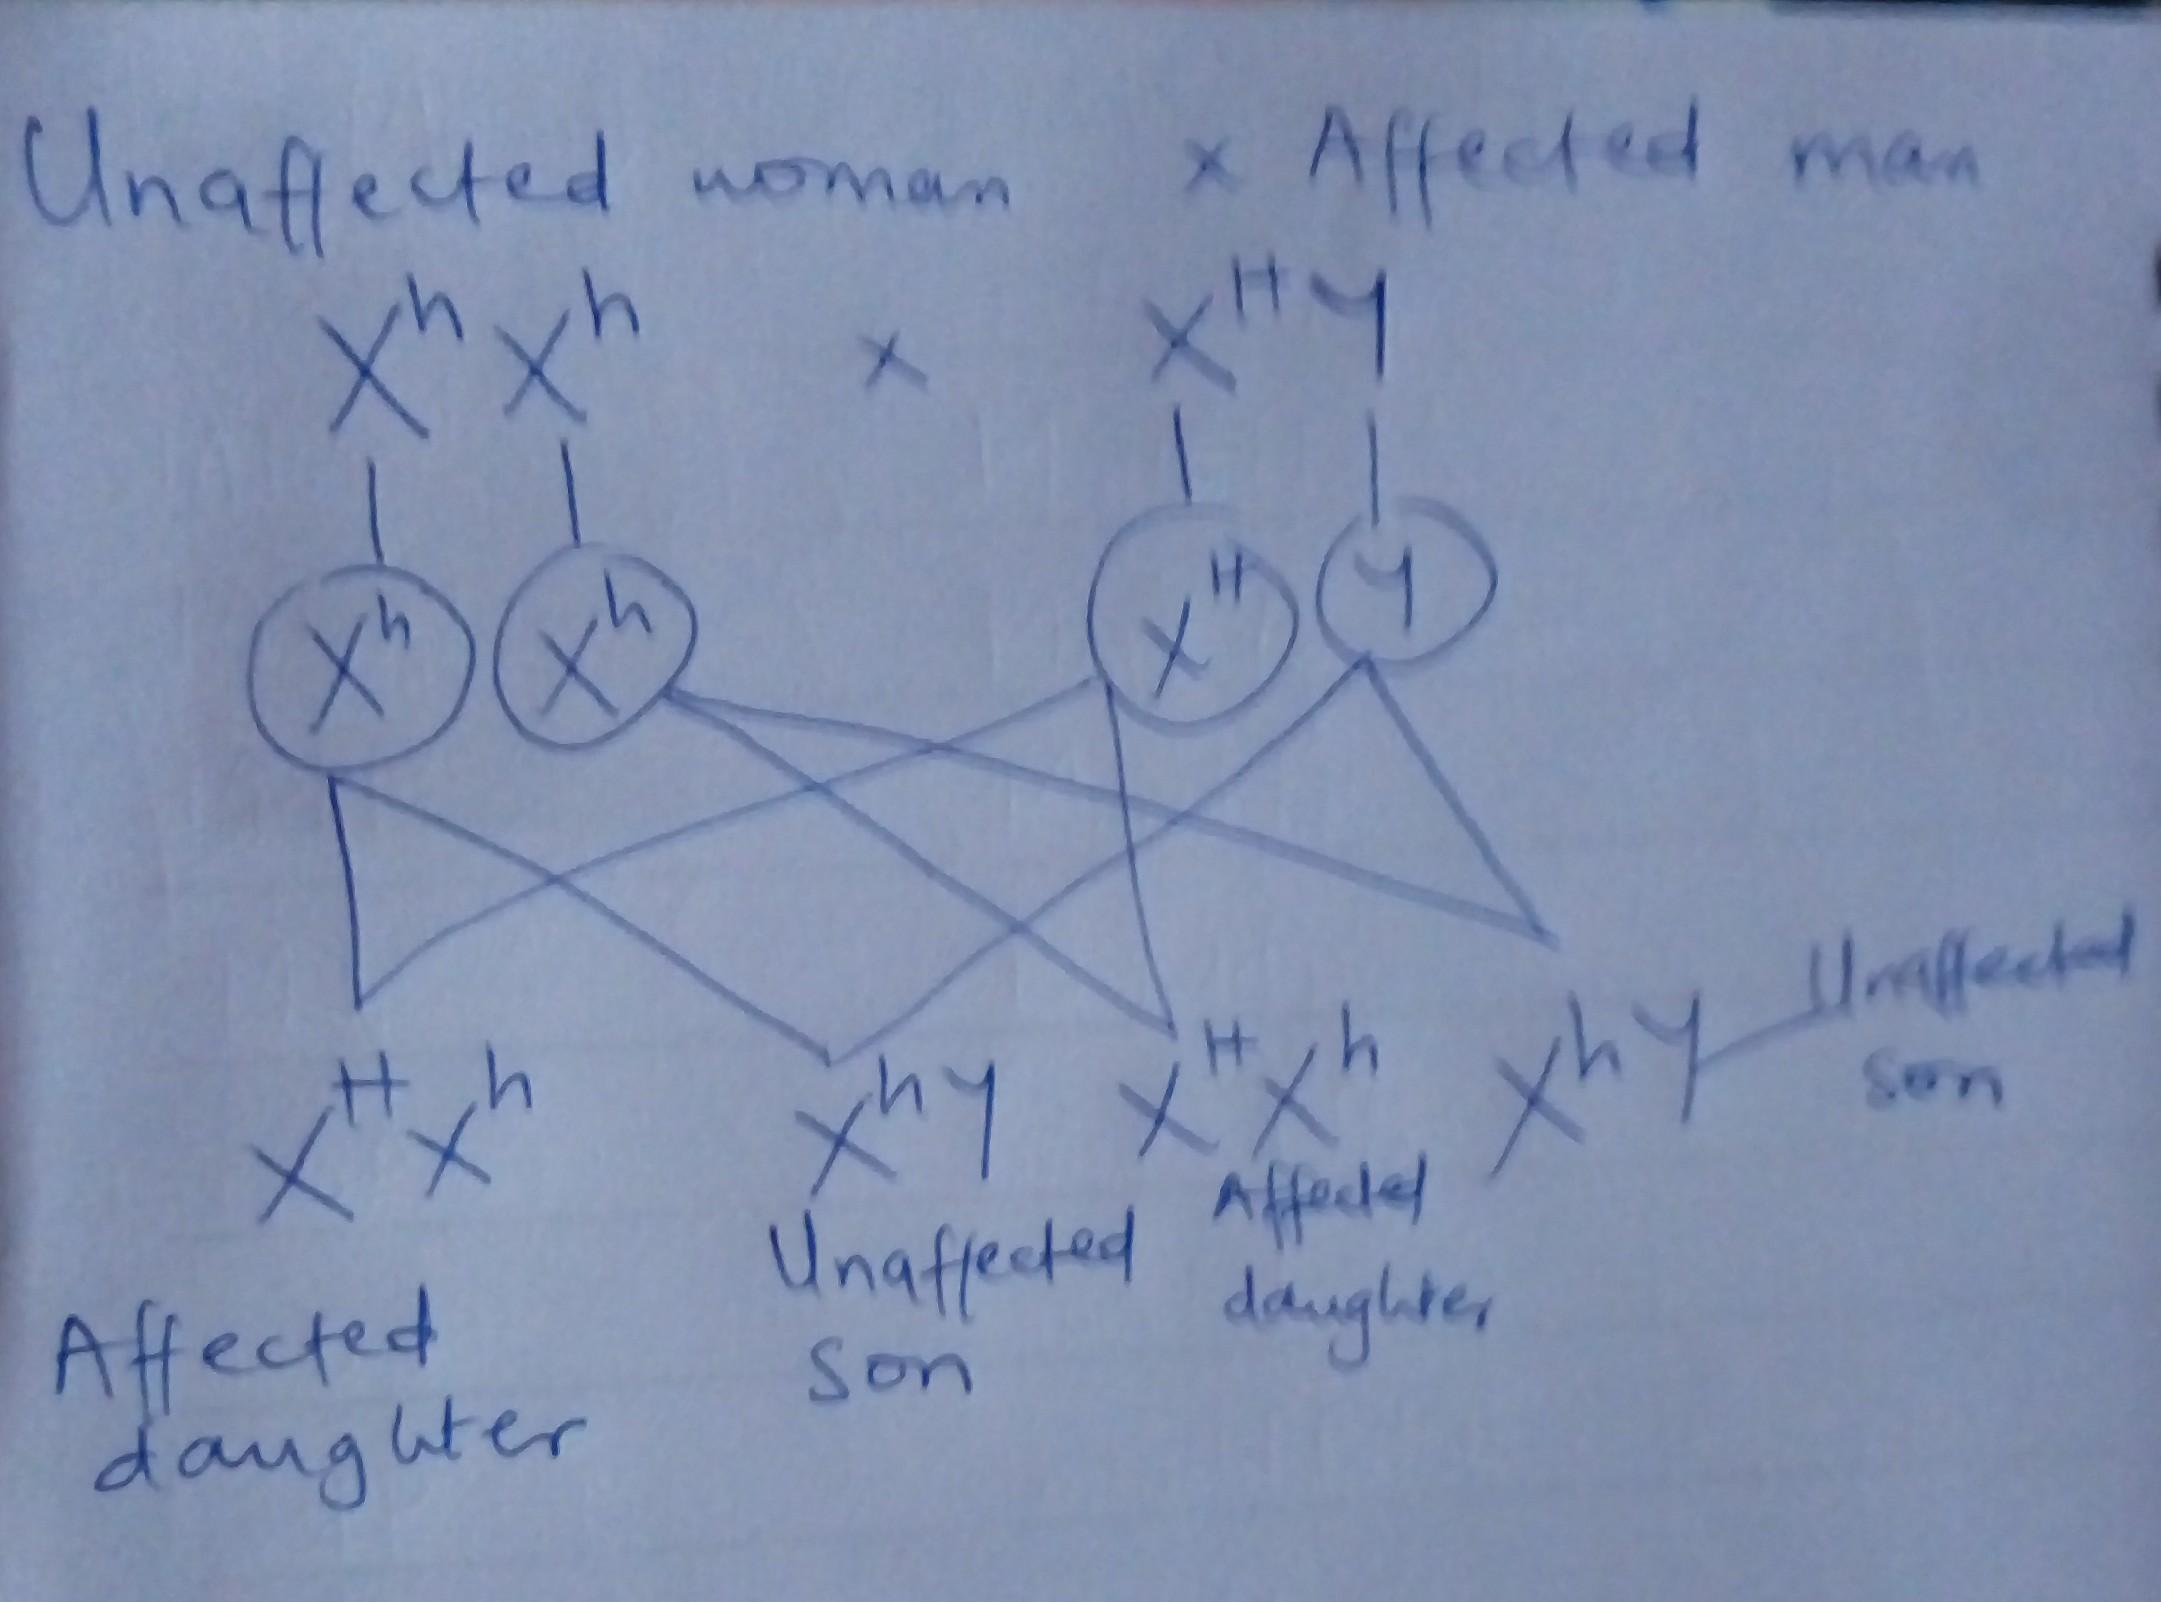 Unaffected woman x Affected man
X^h X^h x X^H Y
X^h X^h X^H Y
X^H X^h X^h Y X^H X^h X^h Y Unaffected
son
Affected
daughter
Unaffected
son
Affected
daughter